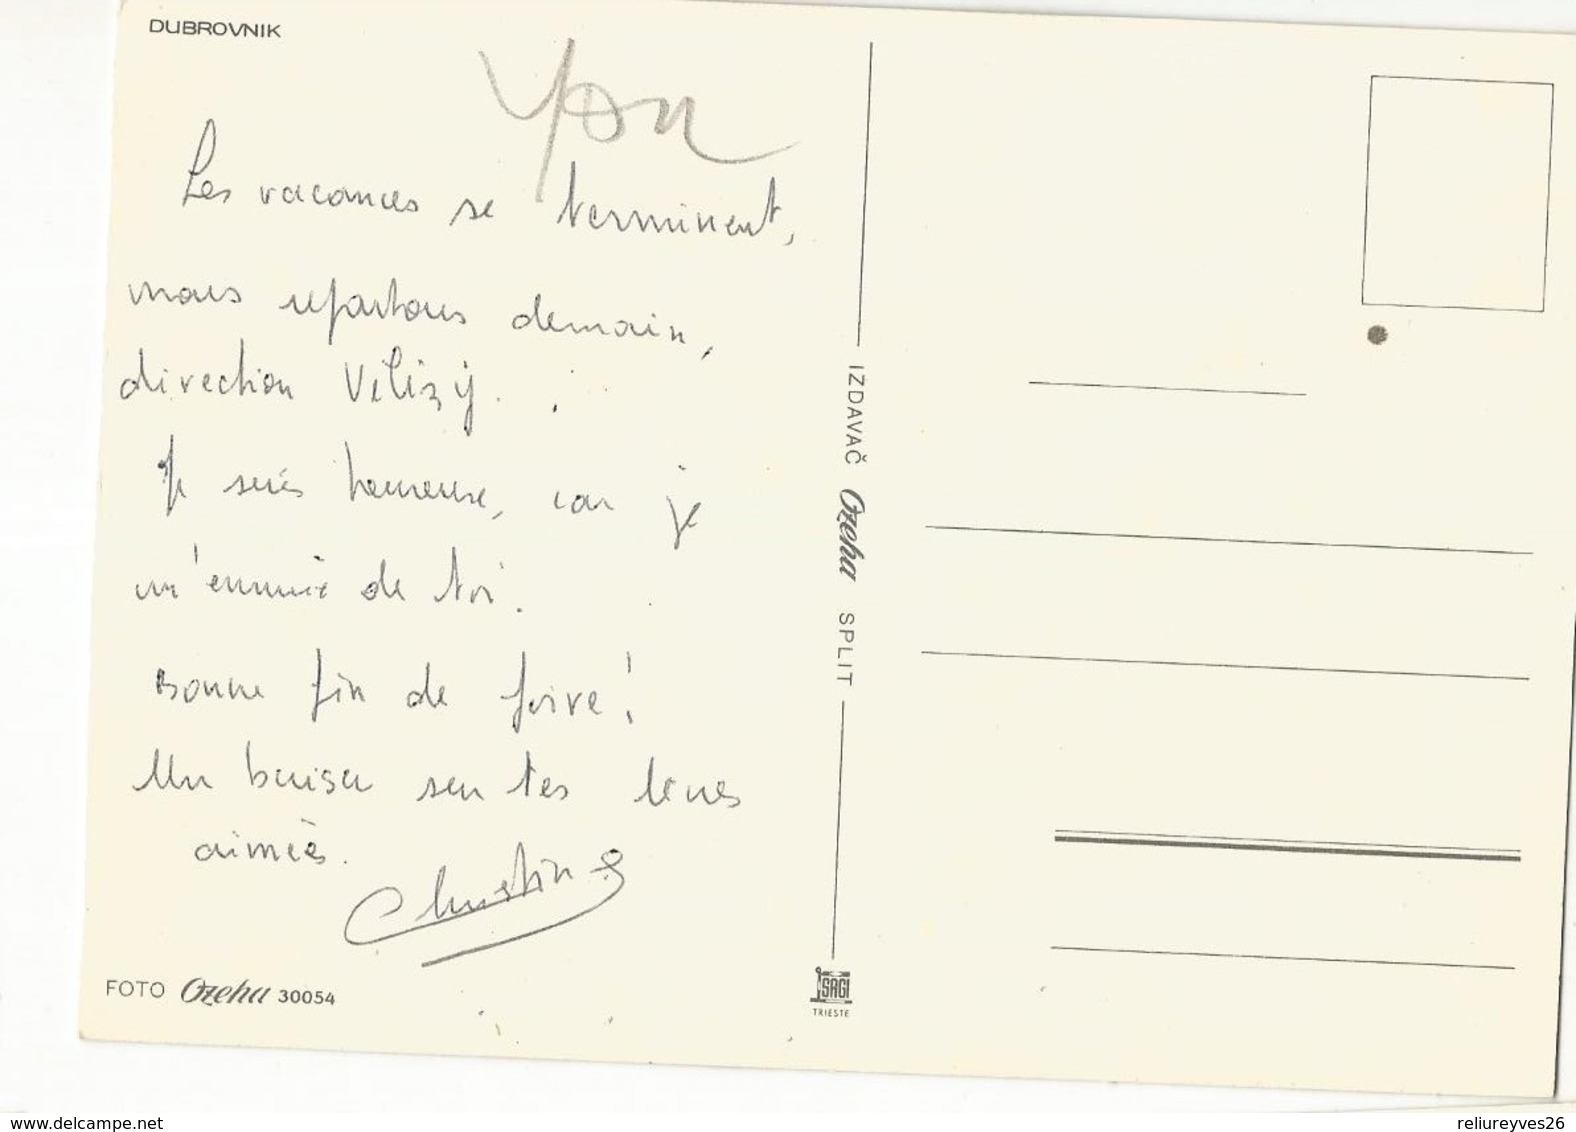 DUBROVNIK
You
Les vacances se terminent,
nous repartons demain,
direction Vélizy.
Je suis heureuse, car je
m'ennuie de toi.
Bonne fin de foire!
Un baiser sur tes lèvres
aimées.
Christine
FOTO Ozeha 30054
IZDAVAČ Ozeha SPLIT
SAGI
TRIESTE
reliureyves26